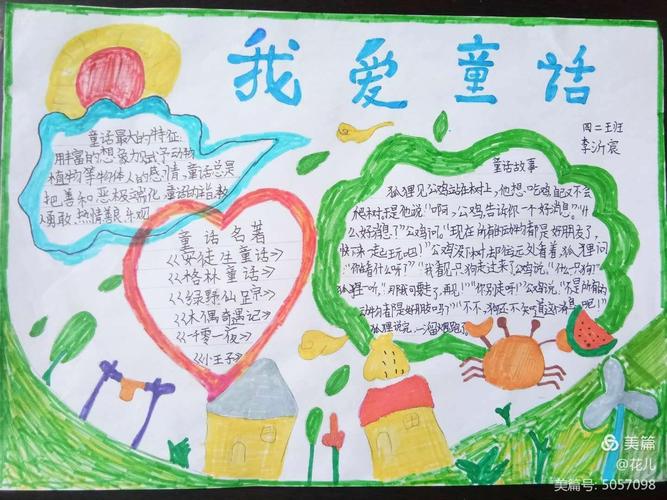 我爱童话
四二班
李沂宸
童话最大的特征:
用丰富的想象力式予动物
植物等物体人的感情,童话总是
把善和恶极端化,童话的指教
勇敢,热情善良乐观
童话名著
《安徒生童话》
《格林童话》
《绿野仙踪》
《木偶奇遇记》
《一千零一夜》
《小王子》
童话故事
狐狸见公鸡站在树上,他想吃鸡自己又不会
爬树于是他说"啊,公鸡告诉你一个好消息""什
么好消息?"公鸡问。"现在所有的动物都是好朋友了,
快下来一走玩吧!"公鸡没下树却往远处看着,狐狸问
"你看什么呀?""我看见只狗走过来了公鸡说。"什么?狗?"
狐狸一听,"那我可要走了,再见!""你别走呀!"公鸡说,"不是所有的
动物都是好朋友吗?""不,不,狗还不知道这个消息呢!"
狐狸说完,一溜烟跑了
美篇
@花儿
美篇号: 5057098